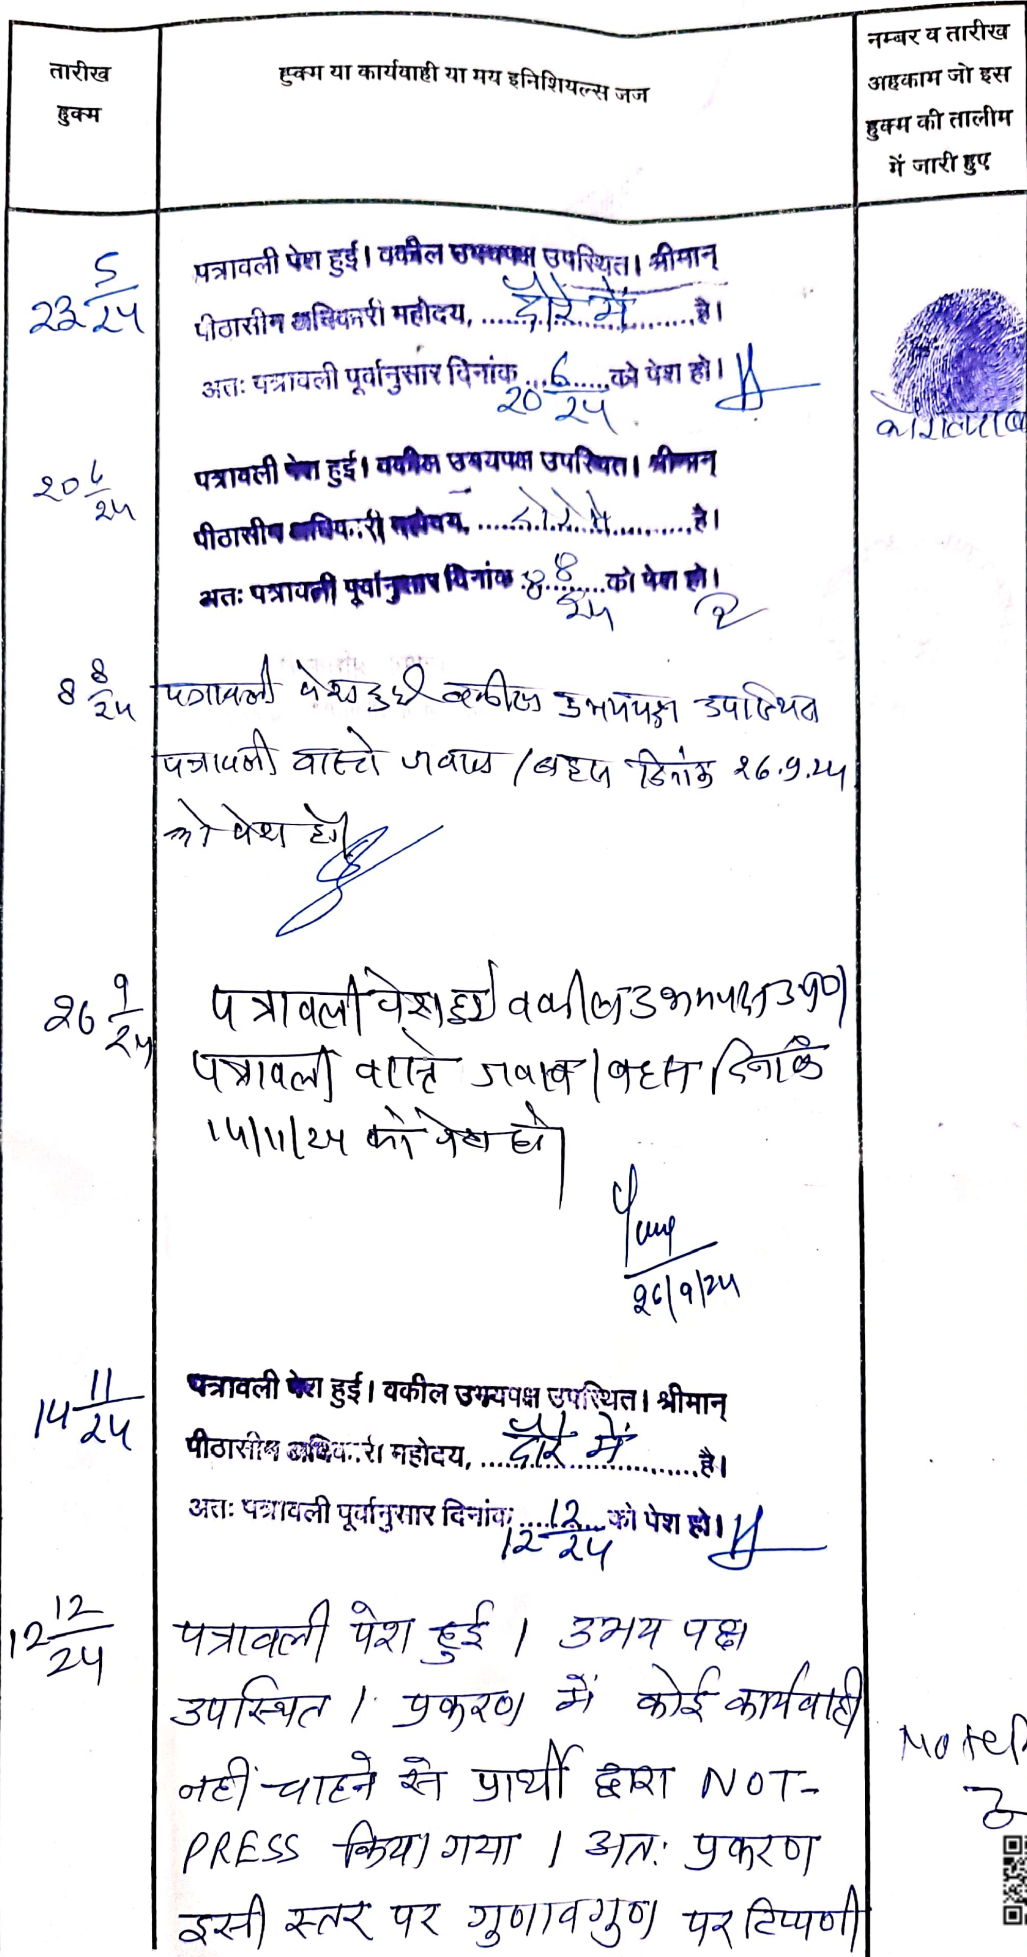 तारीख
हुक्म
हुक्म या कार्यवाही या मय इनिशियल्स जज
नम्बर व तारीख
अहकाम जो इस
हुक्म की तालीम
में जारी हुए
23 5/24
पत्रावली पेश हुई। वकील उभयपक्ष उपस्थित। श्रीमान्
पीठासीन अधिकारी महोदय, ......दौरे में......है।
अतः पत्रावली पूर्वानुसार दिनांक 20 6/24 को पेश हो।
20 6/24
पत्रावली पेश हुई। वकील उभयपक्ष उपस्थित। श्रीमान्
पीठासीन अधिकारी महोदय, ......दौरे में......है।
अतः पत्रावली पूर्वानुसार दिनांक 8 8/24 को पेश हो।
8 8/24
पत्रावली पेश हुई वकील उभयपक्ष उपस्थित
पत्रावली वास्ते जवाब / बहस दिनांक 26.9.24
को पेश हो।
26 9/24
पत्रावली पेश हुई वकील उभयपक्ष उप0।
पत्रावली वास्ते जवाब / बहस दिनांक
14/11/24 को पेश हो।
26/9/24
14 11/24
पत्रावली पेश हुई। वकील उभयपक्ष उपस्थित। श्रीमान्
पीठासीन अधिकारी महोदय, ......दौरे में......है।
अतः पत्रावली पूर्वानुसार दिनांक 12 12/24 को पेश हो।
12 12/24
पत्रावली पेश हुई । उभय पक्ष
उपस्थित । प्रकरण में कोई कार्यवाही
नहीं चाहने से प्रार्थी द्वारा NOT-
PRESS किया गया । अतः प्रकरण
इसी स्तर पर गुणावगुण पर टिप्पणी